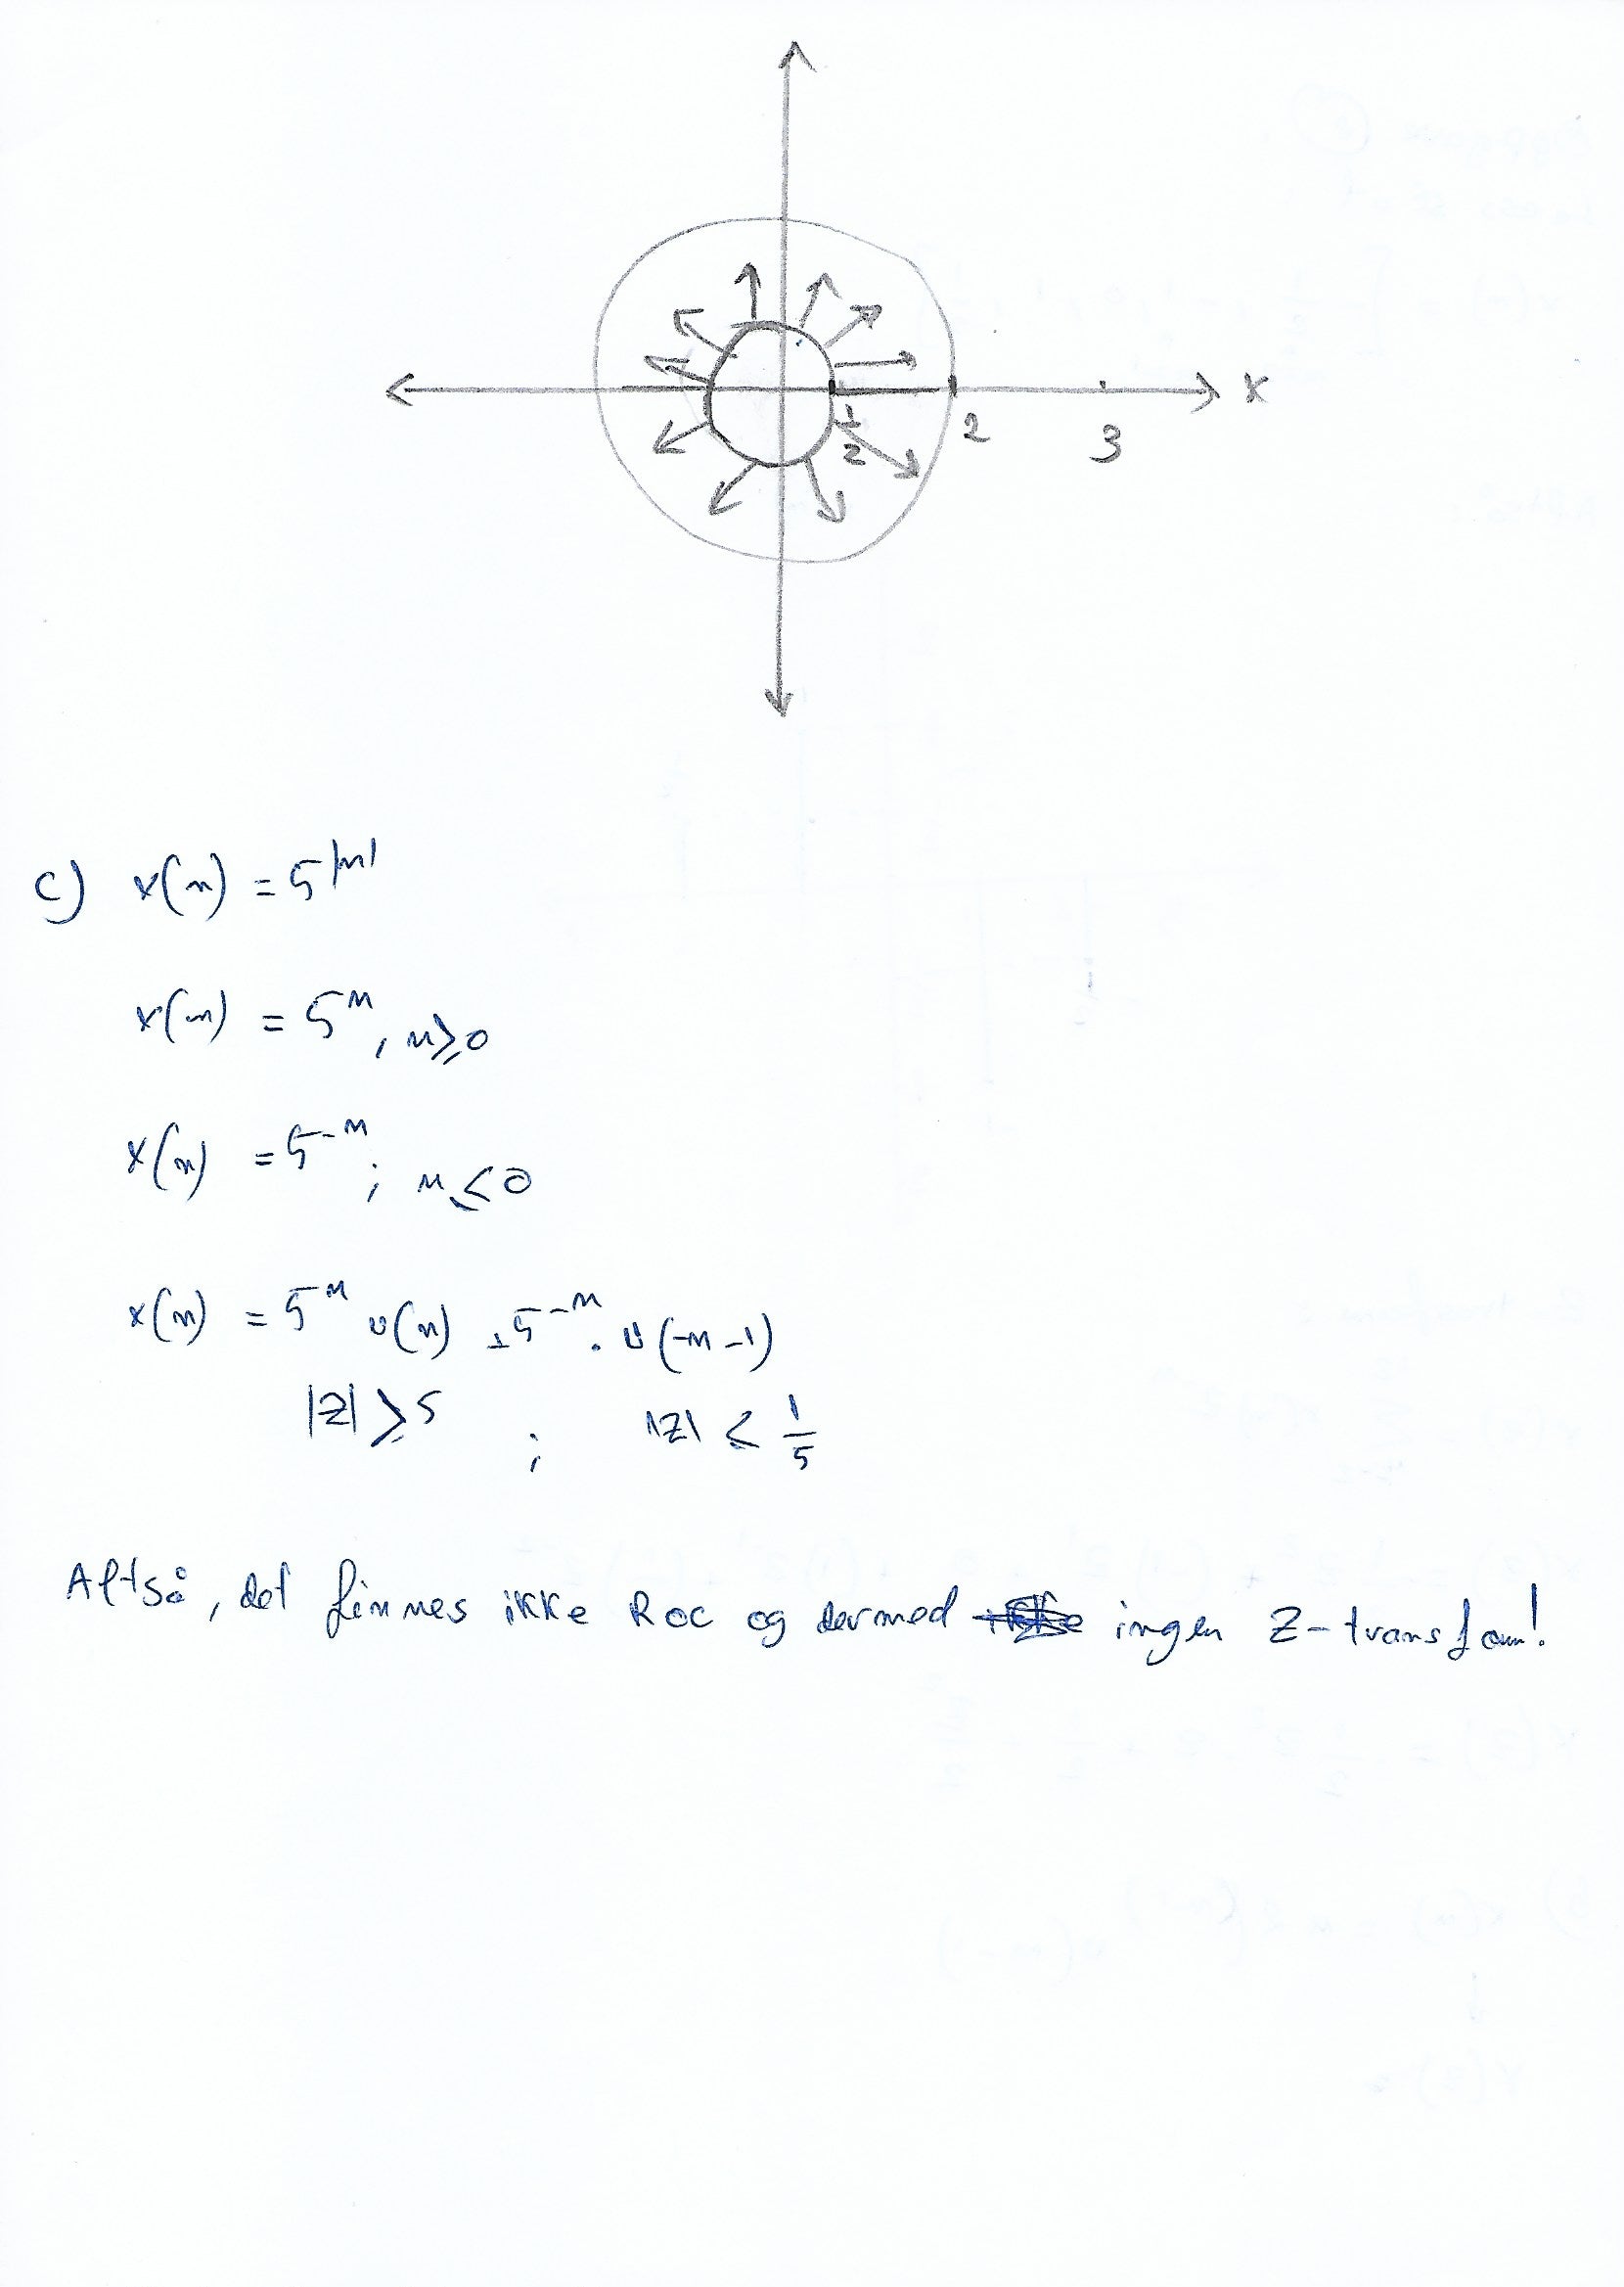 x
1/2
2
3
c) x(n) = 5^|n|
x(n) = 5^n, n≥0
x(n) = 5^-n; n≤0
x(n) = 5^n u(n) + 5^-n · u(-n-1)
|z| ≥ 5 ; |z| ≤ 1/5
Altså, det finnes ikke Roc og dermed ingen Z-transform!